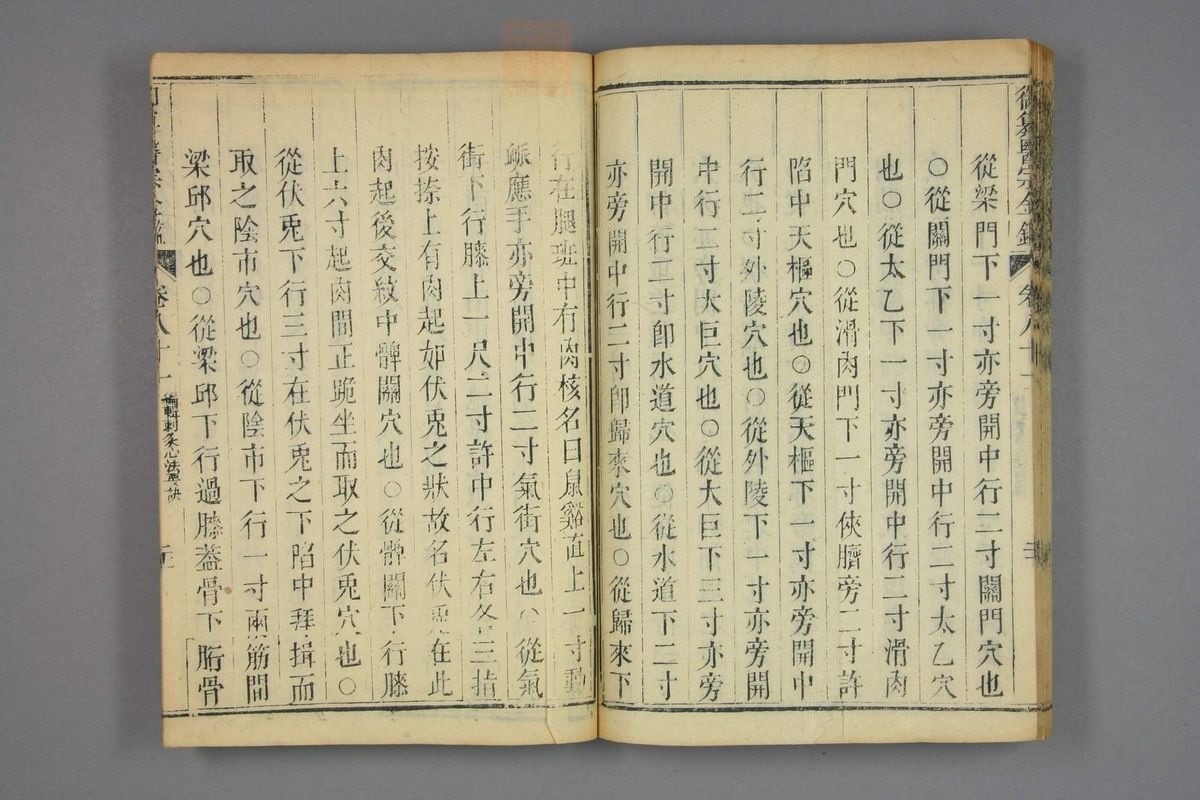 御纂醫宗金鑑 卷八十一
從梁門下一寸亦旁開中行二寸關門穴也
○從關門下一寸亦旁開中行二寸太乙穴
也○從太乙下一寸亦旁開中行二寸滑肉
門穴也○從滑肉門下一寸俠臍旁二寸許
陷中天樞穴也○從天樞下一寸亦旁開中
行二寸外陵穴也○從外陵下一寸亦旁開
中行二寸大巨穴也○從大巨下三寸亦旁
開中行二寸卽水道穴也○從水道下二寸
亦旁開中行二寸卽歸來穴也○從歸來下
行在腿班中有肉核名曰鼠谿直上一寸動
脈應手亦旁開中行二寸氣街穴也○從氣
街下行膝上一尺二寸許中行左右各三指
按捺上有肉起如伏兎之狀故名伏兎在此
肉起後交紋中髀關穴也○從髀關下行膝
上六寸起肉間正跪坐而取之伏兎穴也○
從伏兎下行三寸在伏兎之下陷中拜揖而
取之陰市穴也○從陰市下行一寸兩筋間
梁邱穴也○從梁邱下行過膝蓋骨下䯒骨
卷八十一 編輯刺灸心法要訣